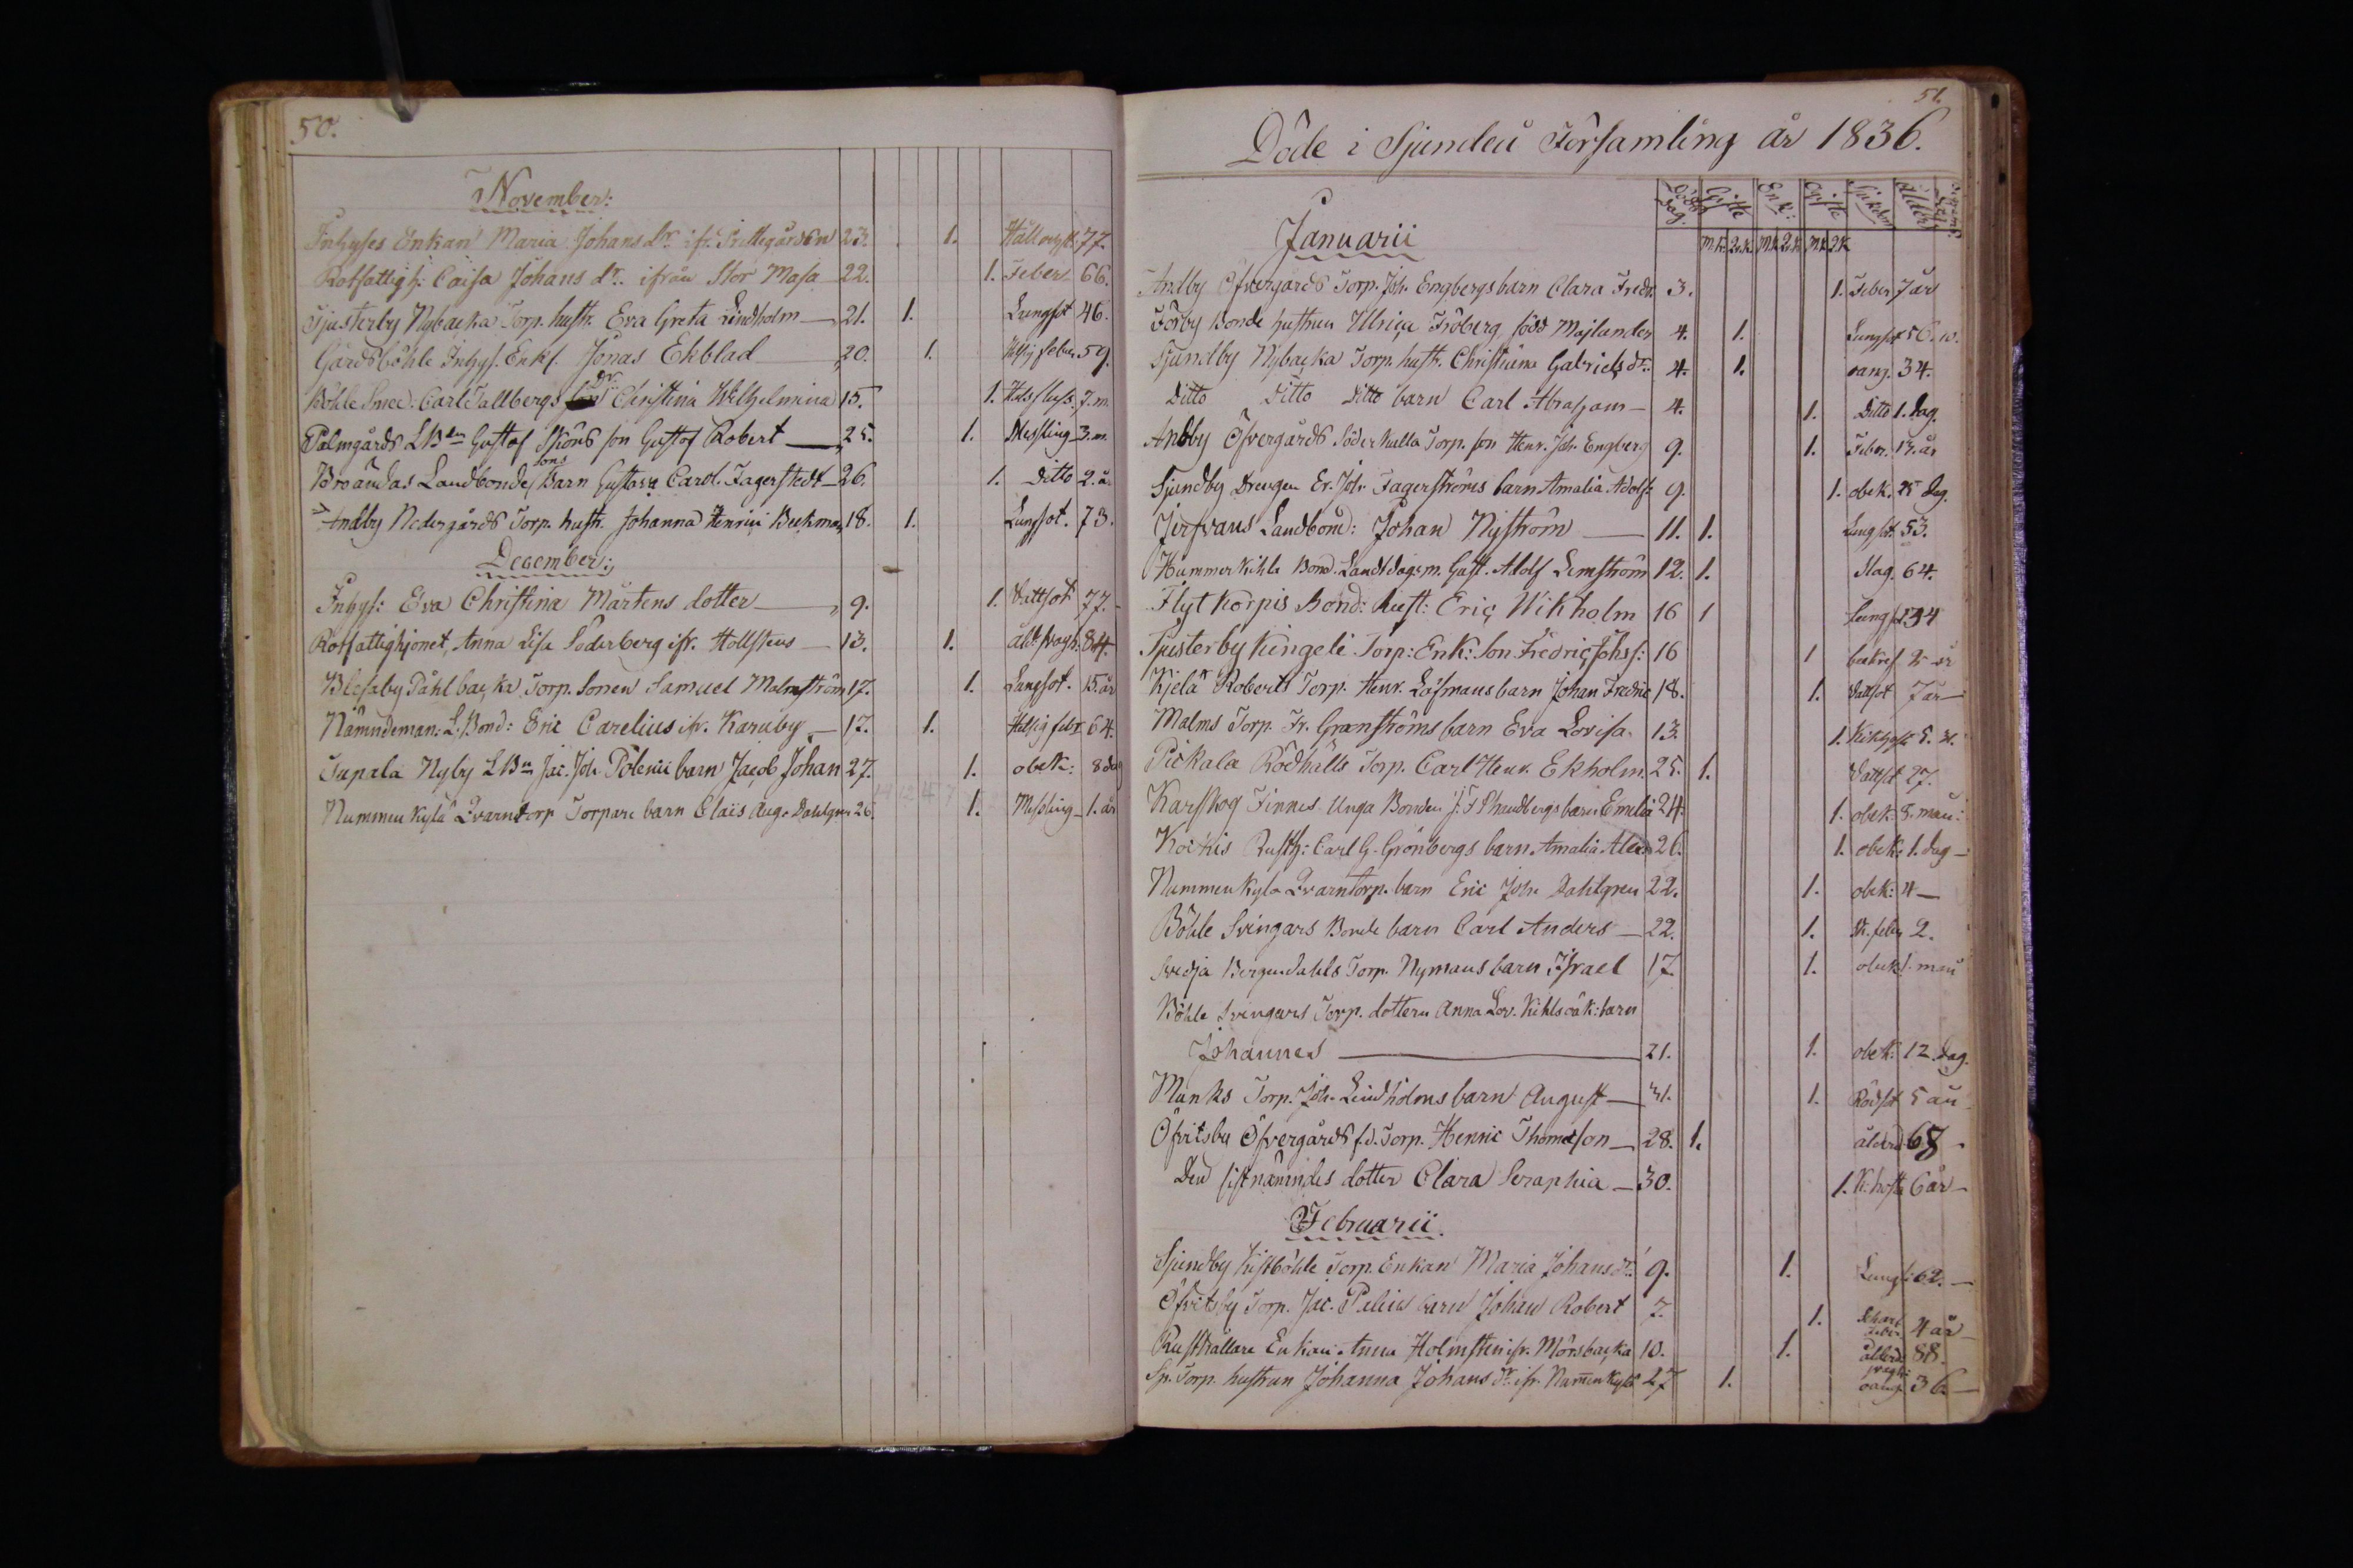 50.
November:
Inhyses Enkan Maria Johans dr. ifr. Prestegården 23. 1. Håll o stygn 77.
Rotfattigh: Caisa Johans dr. ifrån Stor Masa 22. 1. Feber 66.
Tjusterby Nybacka Torp. hustr. Eva Greta Lindholm 21. 1. Lungsot 46.
Gårdsböhle Inhys. Enkl. Jonas Ekblad 20. 1. Hetsig feber 59.
Böhle Smed: Carl Tallbergs dr Christina Wilhelmina 15. 1. 7. m.
Palmgårds LBdn Gustaf Sköns son Gustof Robert 25. 1. Messling 3. m.
Broändas Landbonde sons Barn Gustava Carol. Fagerstedt 26. 1. Ditto 2. å.
Andby Nedergårds Torp. hustr. Johanna Henrici Beckman 18. 1. Lungsot. 73.
December:
Inhys: Eva Christina Mårtens dotter 9. 1. Vattsot 77.
Rotfattighjonet, Anna Lisa Söderberg ifr. Hollstens 13. 1. Åld. svagh. 84.
Blesaby Påhlbacka Torp. Sonen Samuel Malmström 17. 1. Lungsot. 15 år
Nämndeman: L. Bond: Eric Carelius ifr. Karuby 17. 1. Hetsig febr. 64.
Tupala Nyby LBn Jac. Joh. Polenii barn Jacob Johan 27. 1. obek: 8 dag
Nummenkylä Qvarntorp Torpare barn Claës Aug. Dahlgren 26. 1. Messling 1. år
51.
Döde i Sjundeå Församling år 1836.
Döds Dag. Gifte Enk: Ogifte Sjukdom Ålder
M.k. Q.k. M.k. Q.k. M.k. Q.k.
Januarii
Andby Öfvergårds Torp. Joh. Engbergs barn Clara Fredr. 3. 1. Feber 7 år
Förby Bonde hustrun Ulrica Fröberg född Majlander 4. 1. Lungsot 56.
Sjundby Nybacka Torp. hustr. Christina Gabriels dr. 4. 1. 34.
Ditto Ditto Ditto barn Carl Abraham 4. 1. Ditto 1. dag.
Andby Öfvergårds Söderkulla Torp. son Henr. Joh. Engberg 9. 1. Feber. 13. år
Sjundby Drengen Er. Joh. Fagerströms barn Amalia Adolf. 9. 1. obek. 25 dag.
Jerfvans Landbond: Johan Nyström 11. 1. Lungsot. 53.
Hummerkihla Bond. Landtdagsm. Gust. Adolf Lemström 12. 1. Slag. 64.
Flyt Korpis Bond: Rust: Eric Wikholm 16 1 Lungsot
Tjusterby Kingeli Torp: Enk: Son Fredric Johss: 16 1
Kjela Roberts Torp. Henr. Löfmans barn Johan Fredric 18. 1. Vattsot 7 år
Malms Torp. Fr. Granströms barn Eva Lovisa. 13. 1. Kikhosta
Pickala Rödhälls Torp. Carl Henr. Ekholm. 25. 1. Vattsot 27.
Karskog Finnes Unga Bonden J. F. Strandbergs barn Emelia 24. 1. obek: 8. mån:
Koikis Rusth: Carl G. Grönbergs barn Amalia Alex. 26. 1. obek: 1. dag
Nummenkyla Qvarntorp. barn Eric Joh. Dahlgren 22. 1. obek: 4
Böhle Svingars Bonde barn Carl Anders 22. 1. feber 2.
Svedja Bergendahls Torp. Nymans barn Israel 17. 1. obek: 1. mån
Böhle Svingars Torp. dottern Anna Lov. Kihls oäk: barn
Johannes 21. 1. obek: 12. dag.
Munks Torp. Joh. Lindholms barn August 31. 1. Rödsot
Öfvitsby Öfvergårds f.d. Torp. Henric Thomasson 28. 1. ålderd. 68
Den sistnämndes dotter Clara Seraphia 30. 1. K. hosta 6 år
Februarii.
Sjundby Kistböhle Torp. Enkan Maria Johans dr. 9. 1. Lungs: 62.
Öfvitsby Torp. Jac. barn Johan Robert 7. 1. Scharl. Feber 4 år
Rusthållare Enkan Anna Holmsten ifr. Mörsbacka 10. 1. ålderd. svagh: 88.
Sp. Torp. hustrun Johanna Johans dr. ifr. Nummenkylä 27 1. 36.